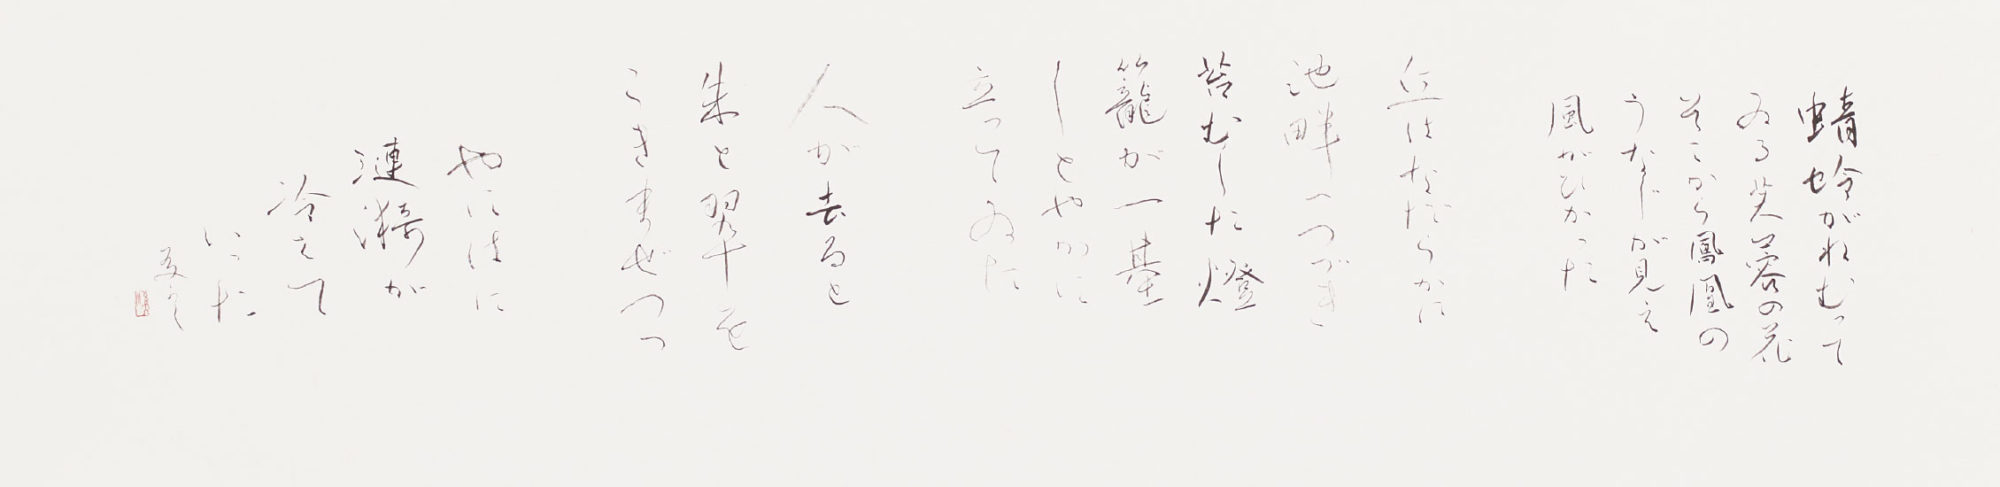 蜻蛉がねむって
ゐる芙蓉の花
そこから鳳凰の
うなじが見え
風がひかった
丘はなだらかに
池畔へつづき
苔むした燈
籠が一基
しとやかに
立ってゐた
人が去ると
朱と翠を
こきまぜつつ
やにはに
漣漪が
冷えて
いった